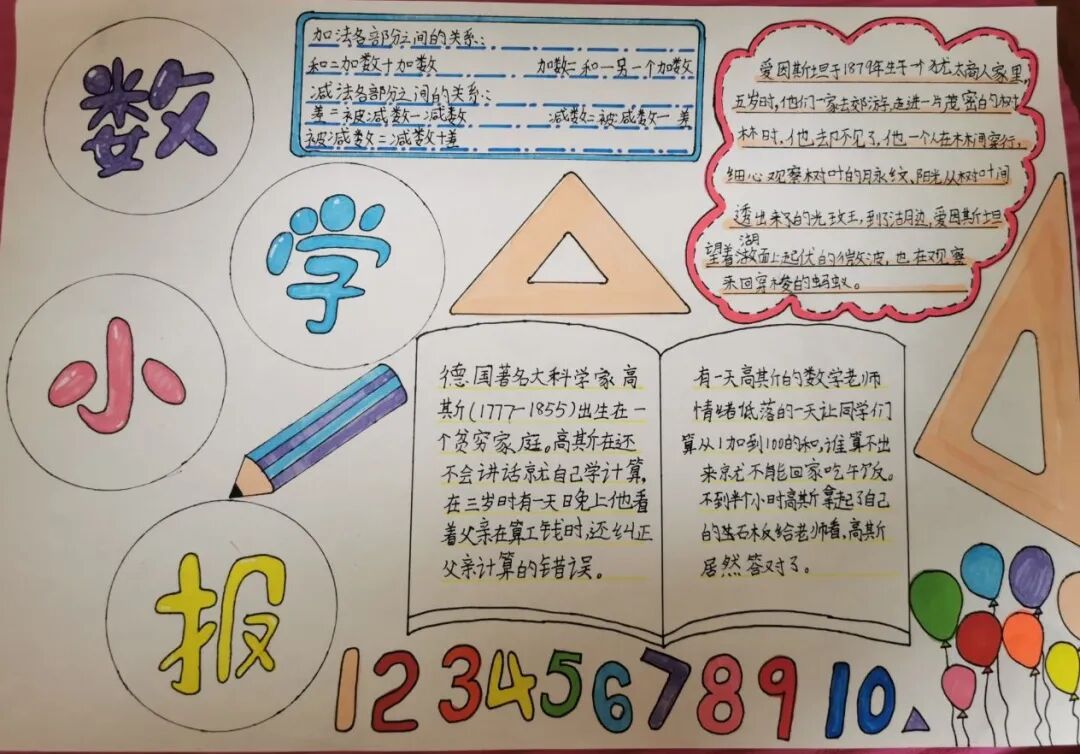 数
学
小
报
加法各部分之间的关系:
和=加数+加数 加数=和-另一个加数
减法各部分之间的关系:
差=被减数-减数 减数=被减数-差
被减数=减数+差
爱因斯坦于1879年生于一个犹太商人家里,
五岁时,他们一家去郊游,走进一片茂密的树
林时,他却不见了,他一个人在林间穿行,
细心观察树叶的脉纹、阳光从树叶间
透出来的光斑,到了湖边,爱因斯坦
望着湖面上起伏的微波,也在观察
来回穿梭的蚂蚁。
德国著名大科学家高
斯(1777-1855)出生在一
个贫穷家庭。高斯在还
不会讲话就自己学计算,
在三岁时有一天日晚上他看
着父亲在算工钱时,还纠正
父亲计算的错误。
有一天高斯的数学老师
情绪低落的一天让同学们
算从1加到100的和,谁算不出
来就不能回家吃午饭。
不到半个小时高斯拿起了自己
的 石板给老师看,高斯
居然答对了。
1 2 3 4 5 6 7 8 9 10